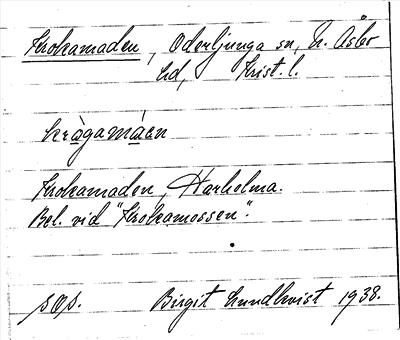 Krokamaden, Oderljunga sn, N. Åsbo
hd, Krist. l.
kràgamáen
Krokamaden, Harholma.
Bel. vid "Krokamossen".
sOs. Birgit Lundkvist 1938.